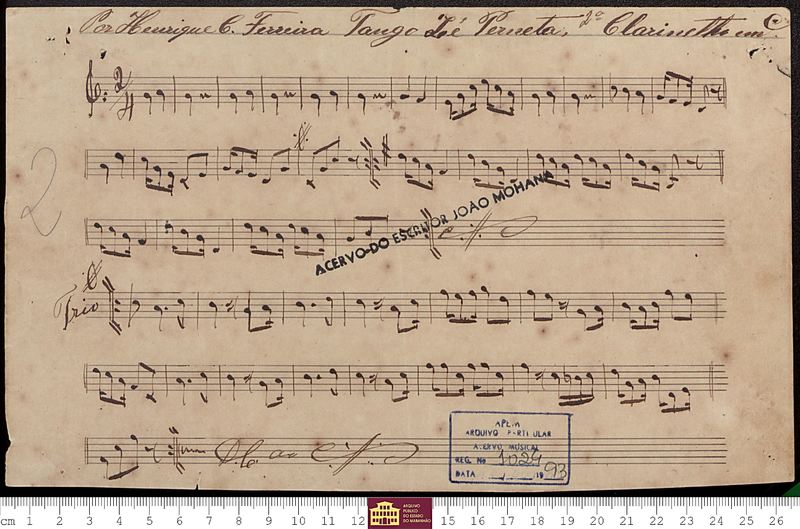 Por Henrique C. Ferreira Tango Zé Perneta, 2º Clarinetto em C
2
4
2
ACERVO DO ESCRITOR JOÃO MOHANA
Trio
APEM
ARQUIVO PARTICULAR
ACERVO MUSICAL
REG. No 1024
DATA 1993
cm 1 2 3 4 5 6 7 8 9 10 11 12 15 16 17 18 19 20 21 22 23 24 25 26
ARQUIVO
PÚBLICO
DO ESTADO
DO MARANHÃO